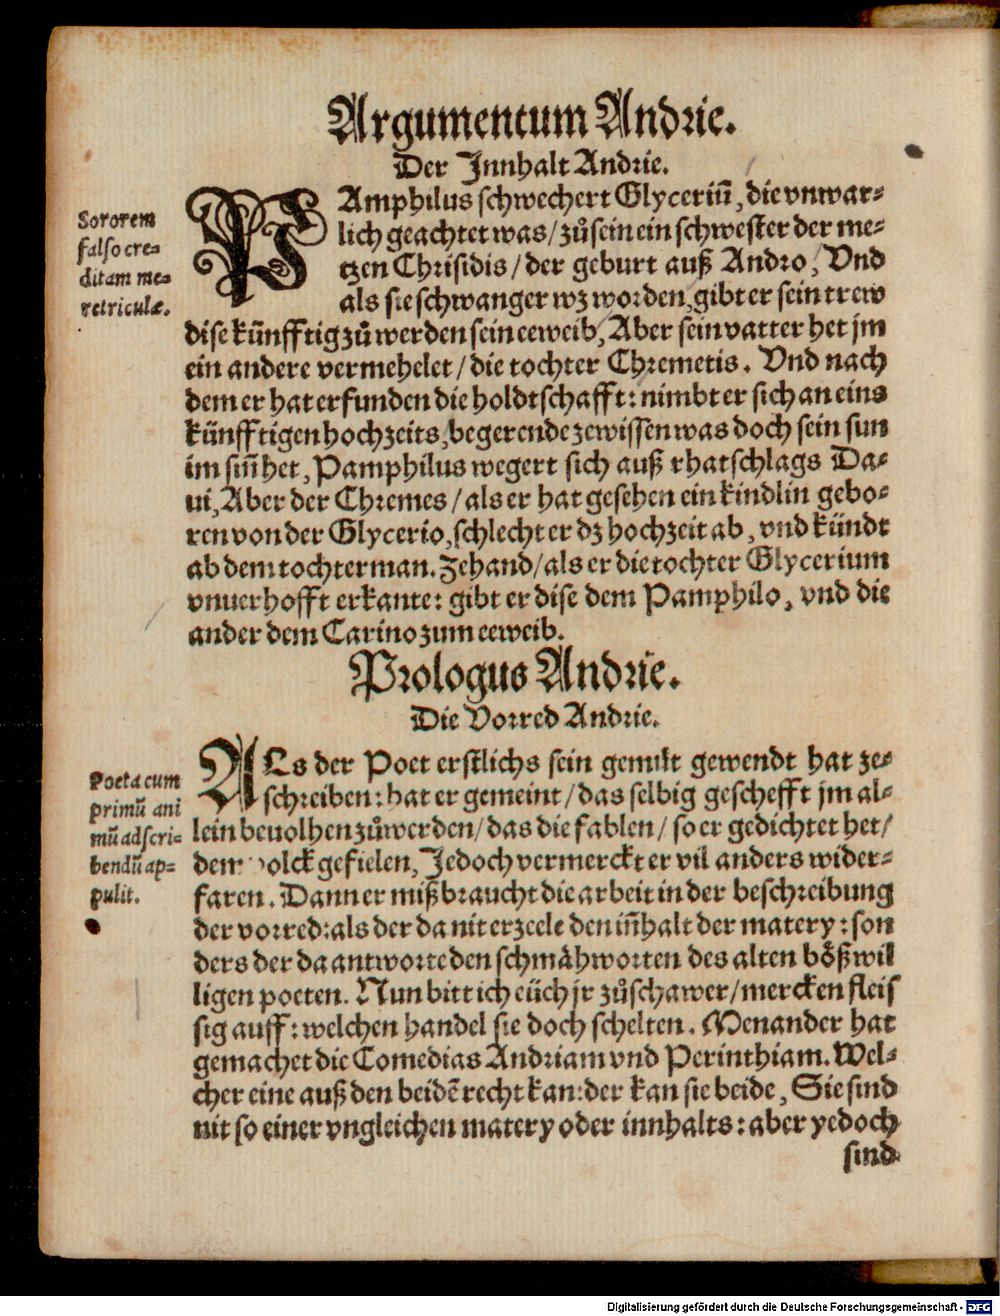 Argumentum Andrie.
Der Innhalt Andrie.
PAmphilus schwechert Glyceriū, die vnwar-
lich geachtet was / zůsein ein schwester der me-
tzen Chrisidis / der geburt auß Andro, Vnd
als sie schwanger wz worden, gibt er sein trew
dise künfftig zů werden sein eeweib, Aber sein vatter het jm
ein andere vermehelet / die tochter Chremetis. Vnd nach
dem er hat erfunden die holdtschafft: nimbt er sich an eins
künfftigen hochzeits, begerende zewissen was doch sein sun
im siñ het, Pamphilus wegert sich auß rhatschlags Da-
ui, Aber der Chremes / als er hat gesehen ein kindlin gebo-
ren von der Glycerio, schlecht er dz hochzeit ab, vnd kündt
ab dem tochterman. Zehand / als er die tochter Glycerium
vnuerhofft erkante: gibt er dise dem Pamphilo, vnd die
ander dem Carino zum eeweib.
Sororem
falso cre-
ditam me-
retriculæ.
Prologus Andrie.
Die Vorred Andrie.
ALs der Poet erstlichs sein gemüt gewendt hat ze-
schreiben: hat er gemeint / das selbig geschefft jm al-
lein beuolhen zůwerden / das die fablen / so er gedichtet het /
dem volck gefielen, Jedoch vermerckt er vil anders wider-
faren. Dann er mißbraucht die arbeit in der beschreibung
der vorred: als der da nit erzeele den iñhalt der matery: son
ders der da antworte den schmähworten des alten bößwil
ligen poeten. Nun bitt ich eüch jr zůschawer / mercken fleis
sig auff: welchen handel sie doch schelten. Menander hat
gemachet die Comedias Andriam vnd Perinthiam. Wel-
cher eine auß den beidē recht kan: der kan sie beide, Sie sind
nit so einer vngleichen matery oder innhalts: aber yedoch
sind
Poeta cum
primū ani
mū ad scri-
bendū ap-
pulit.
Digitalisierung gefördert durch die Deutsche Forschungsgemeinschaft - DFG